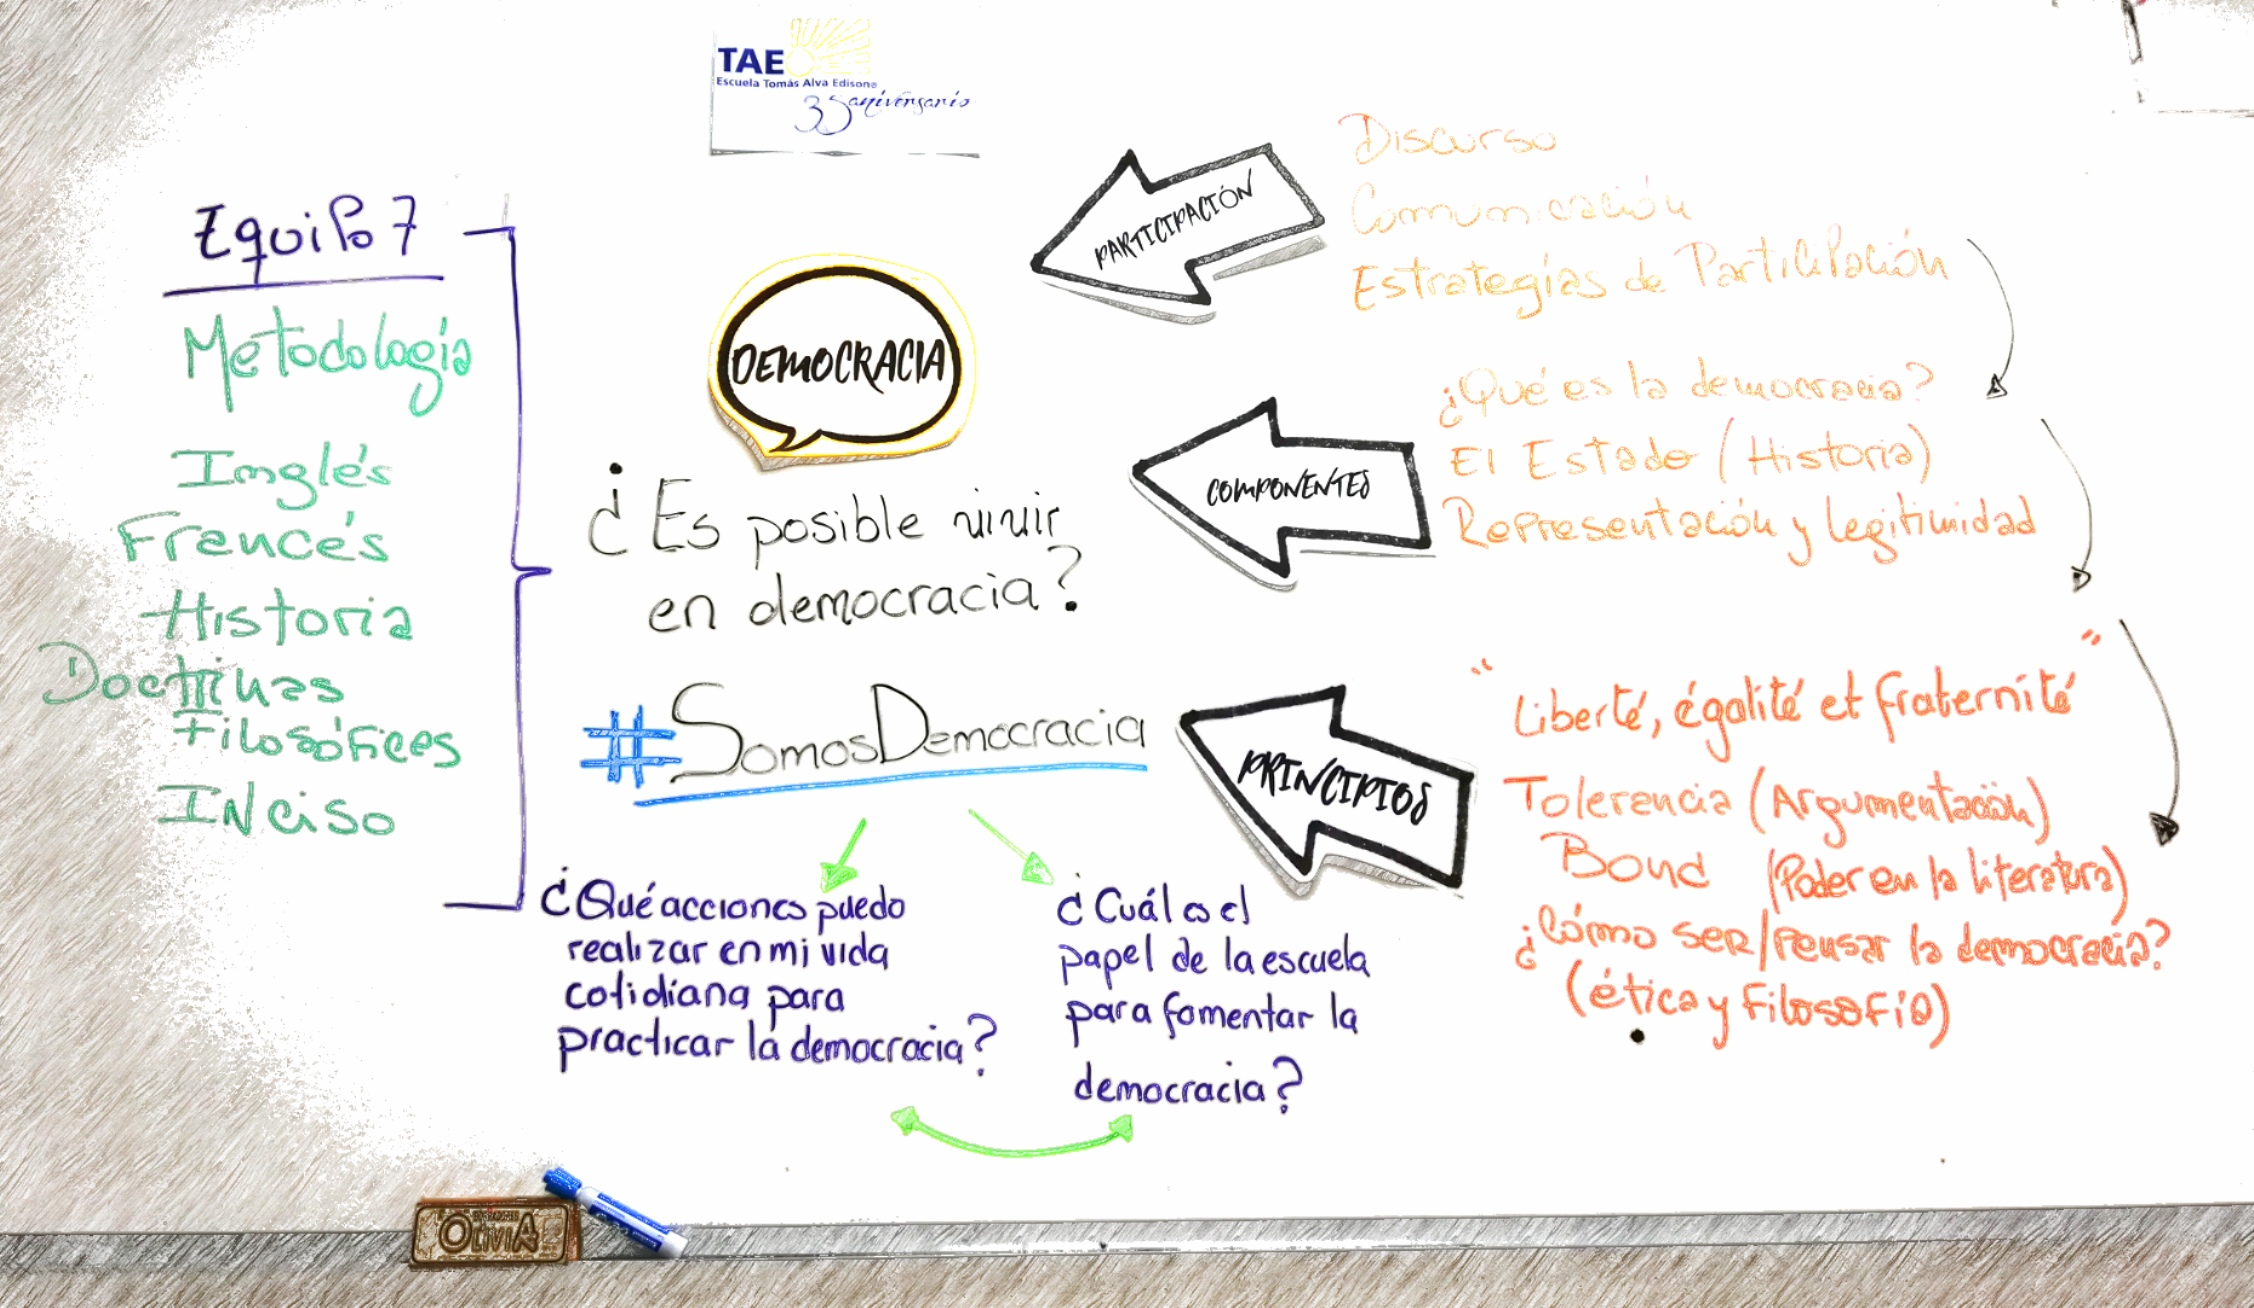 TAE
Escuela Tomás Alva Edison
35 aniversario
Equipo 7
Metodología
Inglés
Francés
Historia
Doctrinas
Filosóficas
INciso
DEMOCRACIA
¿Es posible vivir
en democracia?
#SomosDemocracia
¿Qué acciones puedo
realizar en mi vida
cotidiana para
practicar la democracia?
¿Cuál es el
papel de la escuela
para fomentar la
democracia?
PARTICIPACIÓN
Discurso
Comunicación
Estrategias de Participación
COMPONENTES
¿Qué es la democracia?
El Estado (Historia)
Representación y legitimidad
PRINCIPIOS
"Liberté, égalité et fraternité"
Tolerancia (Argumentación)
Bond (Poder en la literatura)
¿Cómo ser/pensar la democracia?
(ética y filosofía)
OlIVIA